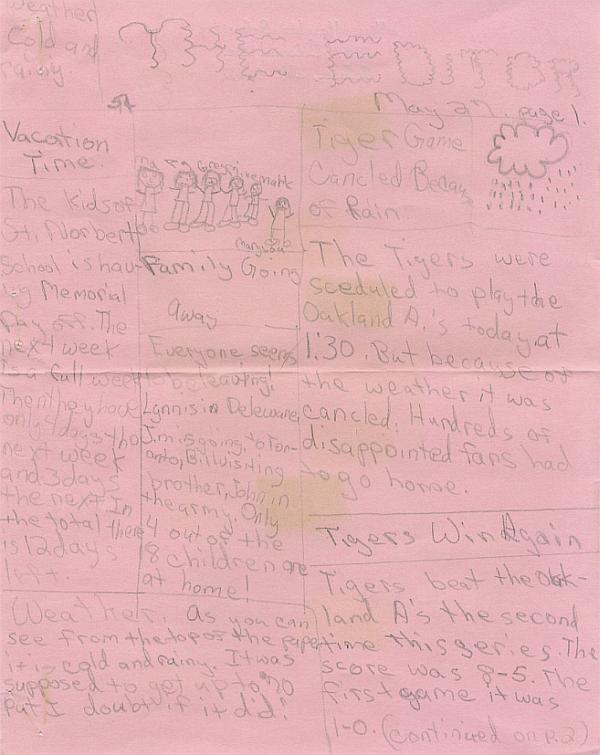 Weather
Cold and
rainy.
THE EDITOR
May 27. page 1.
Vacation
Time.
The kids of
St. Norbert
School is hav-
ing Memorial
Day off. The
next week
is a full week
Then they have
only 4 days the
next week
and 3 days
the next. In
the total there
is 12 days
left.
Greg
Mark
Mary Lou
Family Going
Away
Everyone seems
to be leaving!
Lynn is in Deleware,
Jim is going to Tor-
onto, Bill visiting
brother, John in
the army. Only
4 out of the
8 children are
at home!
Weather. As you can
see from the top of the paper
it is cold and rainy. It was
supposed to get up to 70
but I doubt if it did!
Tiger Game
Cancled Because
of Rain
The Tigers were
sceduled to play the
Oakland A.'s today, at
1:30. But because of
the weather it was
cancled. Hundreds of
disappointed fans had
to go home.
Tigers Win Again
Tigers beat the Oak-
land A's the second
time this series. The
score was 8-5. The
first game it was
1-0. (continued on p.2)